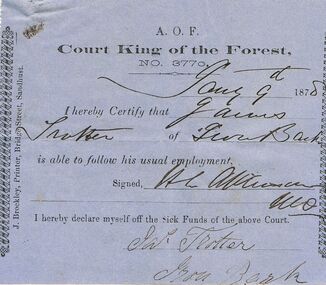 A. O. F.
Court King of the Forest,
NO. 3770.
Jany 9th 1878
I hereby Certify that James
Trotter of Iron Bark
is able to follow his usual employment.
Signed, H L Atkinson
MD
I hereby declare myself off the Sick Funds of the above Court.
Jas. Trotter
Iron Bark
J. Brockley, Printer, Bridge Street, Sandhurst.